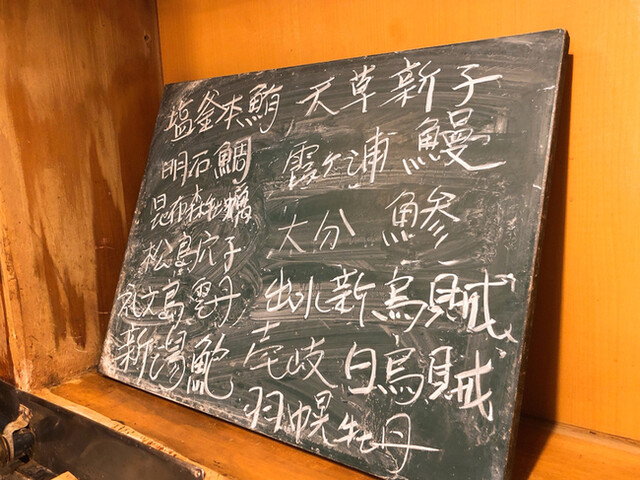 塩釜本鮪
明石鯛
昆布森牡蠣
松島穴子
礼文島雲丹
新潟鮑
天草新子
霞ヶ浦鰻
大分鰺
出水新烏賊
壱岐白烏賊
羽幌牡丹